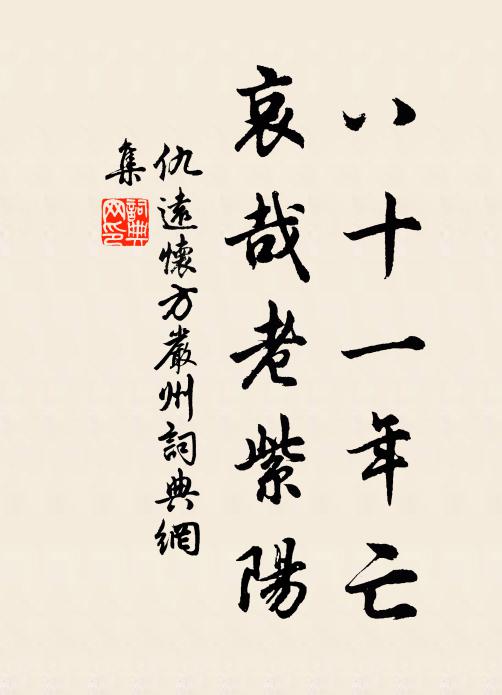 八十一年亡
哀哉老紫陽
仇遠懷方嚴州詞典網
集
詞典網印